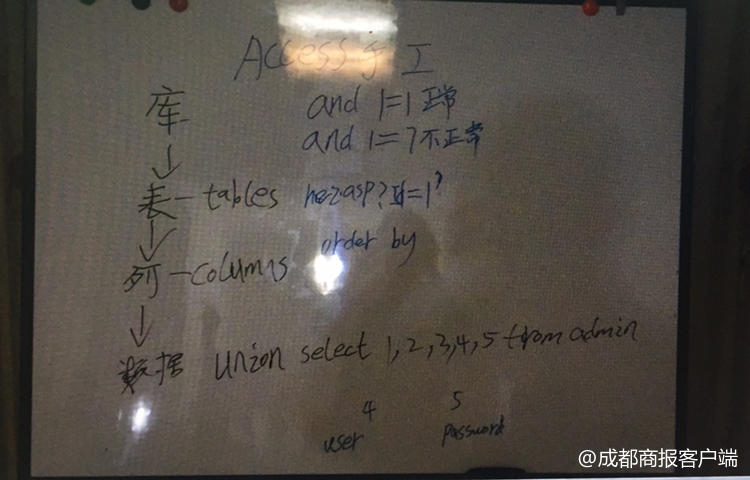 Access手工
库 and 1=1 正常
and 1=7 不正常
表-tables ?id=1'
order by
列-columns
数据 union select 1,2,3,4,5 from admin
4 5
user password
@成都商报客户端